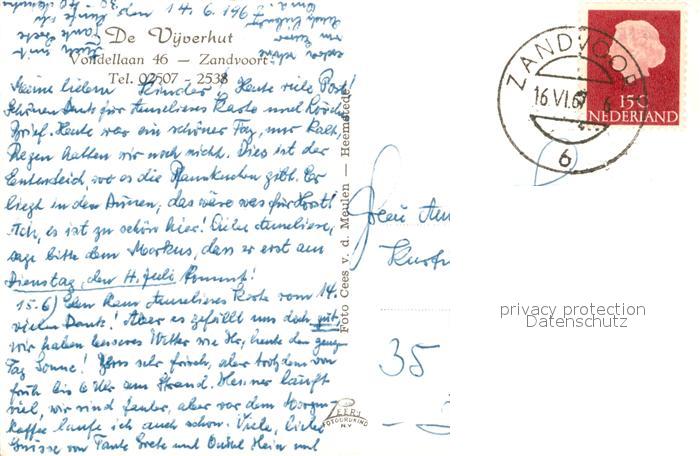 den 14. 6. 1967
De Vijverhut
Vondellaan 46 — Zandvoort
Tel. 02507 - 2538
Meine lieben Kinder! Heute viele Post!
Schönen Dank für Annelieses Karte und
Brief. Heute war ein schöner Tag, nur kalt,
Regen hatten wir noch nicht. Dies ist der
Ententeich, wo es die Pfannkuchen gibt. Er
liegt in den Dünen, das wäre was für Horst!
Ach, es ist zu schön hier! Liebe Anneliese,
sage bitte dem Markus, dass er erst am
Dienstag, den 4. Juli kommt!
15.6) Eben kam Anneliese Karte vom 14.
vielen Dank! Aber es gefällt uns doch gut,
wir haben besseres Wetter wie Ihr, heute den ganzen
Tag Sonne! sehr frisch, aber trotzdem von
früh bis 6 Uhr am Strand. Heiner läuft
viel, wir sind fauler, aber vor dem Morgen-
kaffee laufe ich auch schon. Viele, liebe
Grüsse von Tante Grete und Onkel Hein und
Foto Cees v. d. Meulen — Heemstede
LEER'S
FOTODRUKIND
N.V.
ZANDVOORT
16.VI.67
6
15c
NEDERLAND
Frau
35
privacy protection
Datenschutz